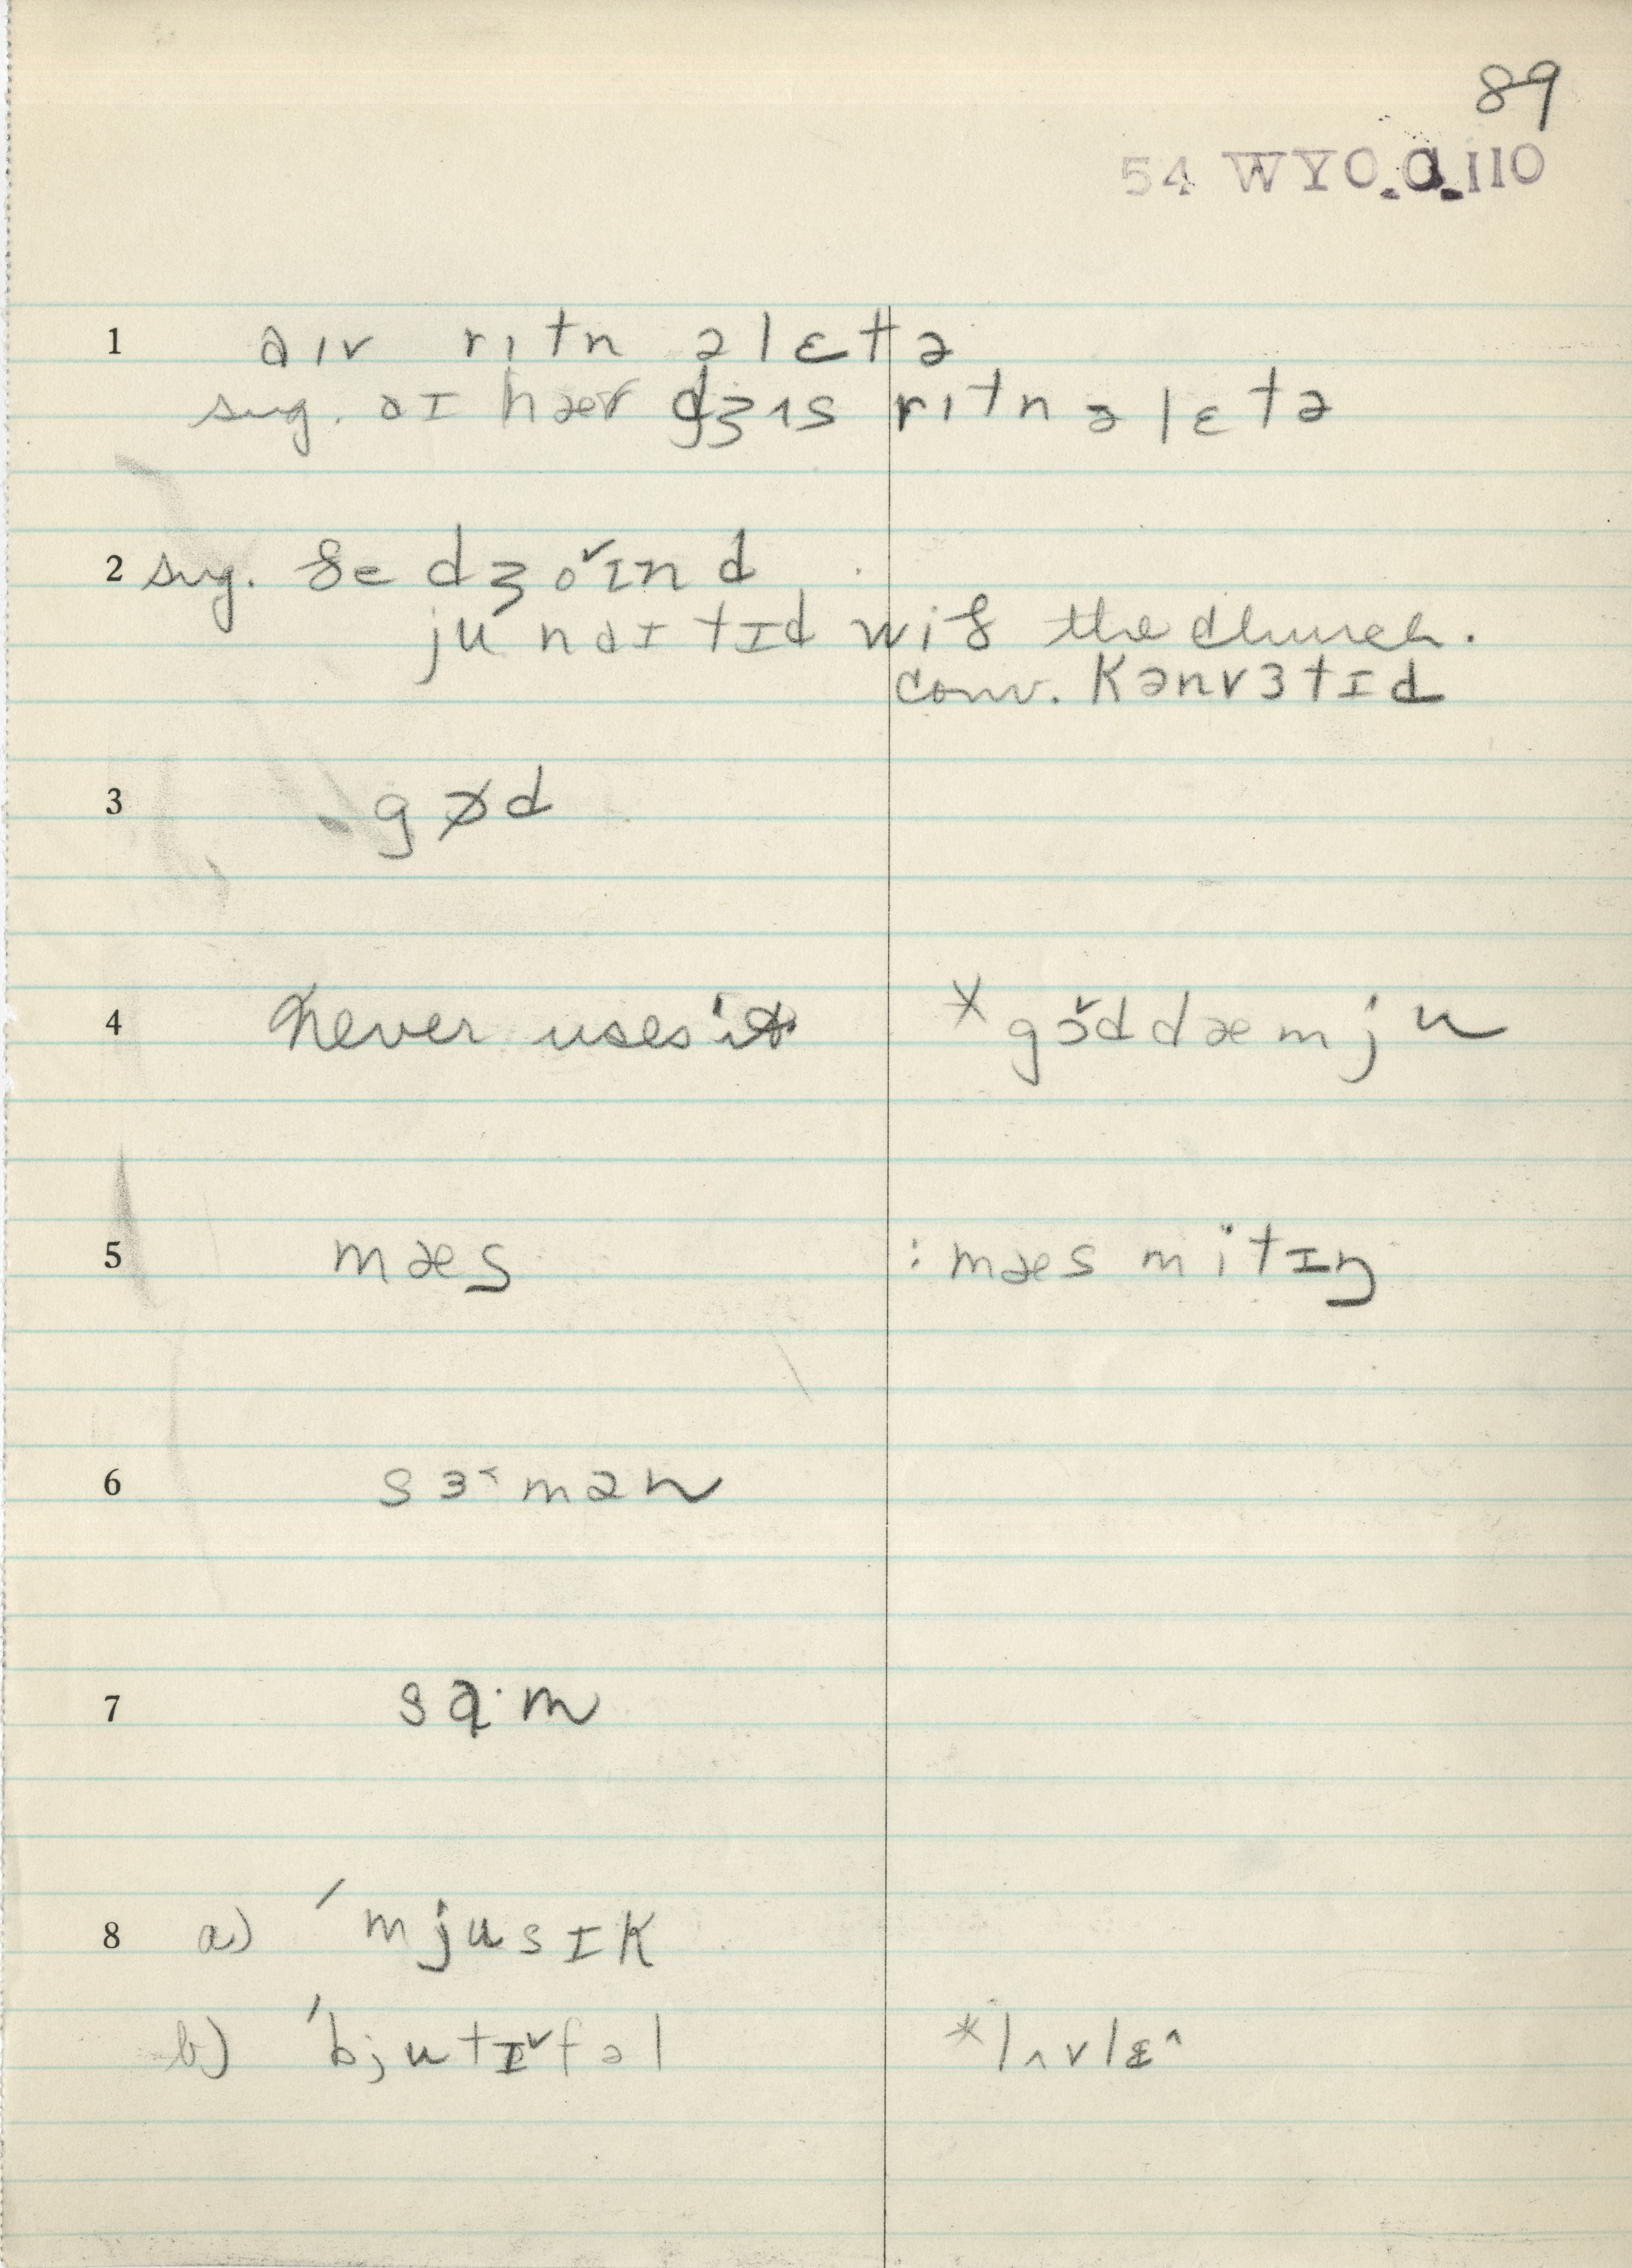 89
54 WYO. a. 110
1 aɪv rɪtn ə lɛtə
sug. aɪ hæv dʒɪs rɪtn ə lɛtə
2 sug. ðe dʒo˅ɪnd
junaɪtɪd wið the church.
conv. kənvɜtɪd
3 gɔd
4 never uses it * gɔ˅ddæmju
5 mæs : mæs mitɪŋ
6 sɜ˂mən
7 sɑ·m
8 a) ˈmjusɪk
b) ˈbjutɪ˅fəl * lʌvlɛ^